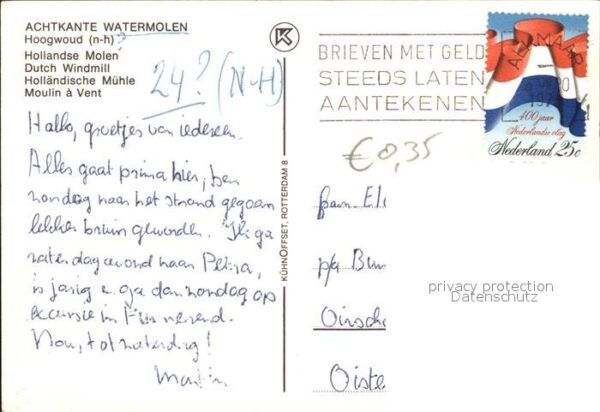 ACHTKANTE WATERMOLEN
Hoogwoud (n-h)?
Hollandse Molen
Dutch Windmill
Holländische Mühle
Moulin à Vent
24? (N-H)
K
BRIEVEN MET GELD
STEEDS LATEN
AANTEKENEN
ALKMAAR
400 jaar
Nederlandse vlag
Nederland 25c
€0,35
Hallo, groetjes van iedereen.
Alles gaat prima hier, ben
zondag naar het strand gegaan
lekker bruin geworden. Ik ga
zaterdagavond naar Petra,
is jarig en ga dan zondag op
excursie in
Nou, tot zaterdag!
KÜHNOFFSET, ROTTERDAM 8
fam. El
p/a
Oirsch
Oiste
privacy protection
Datenschutz